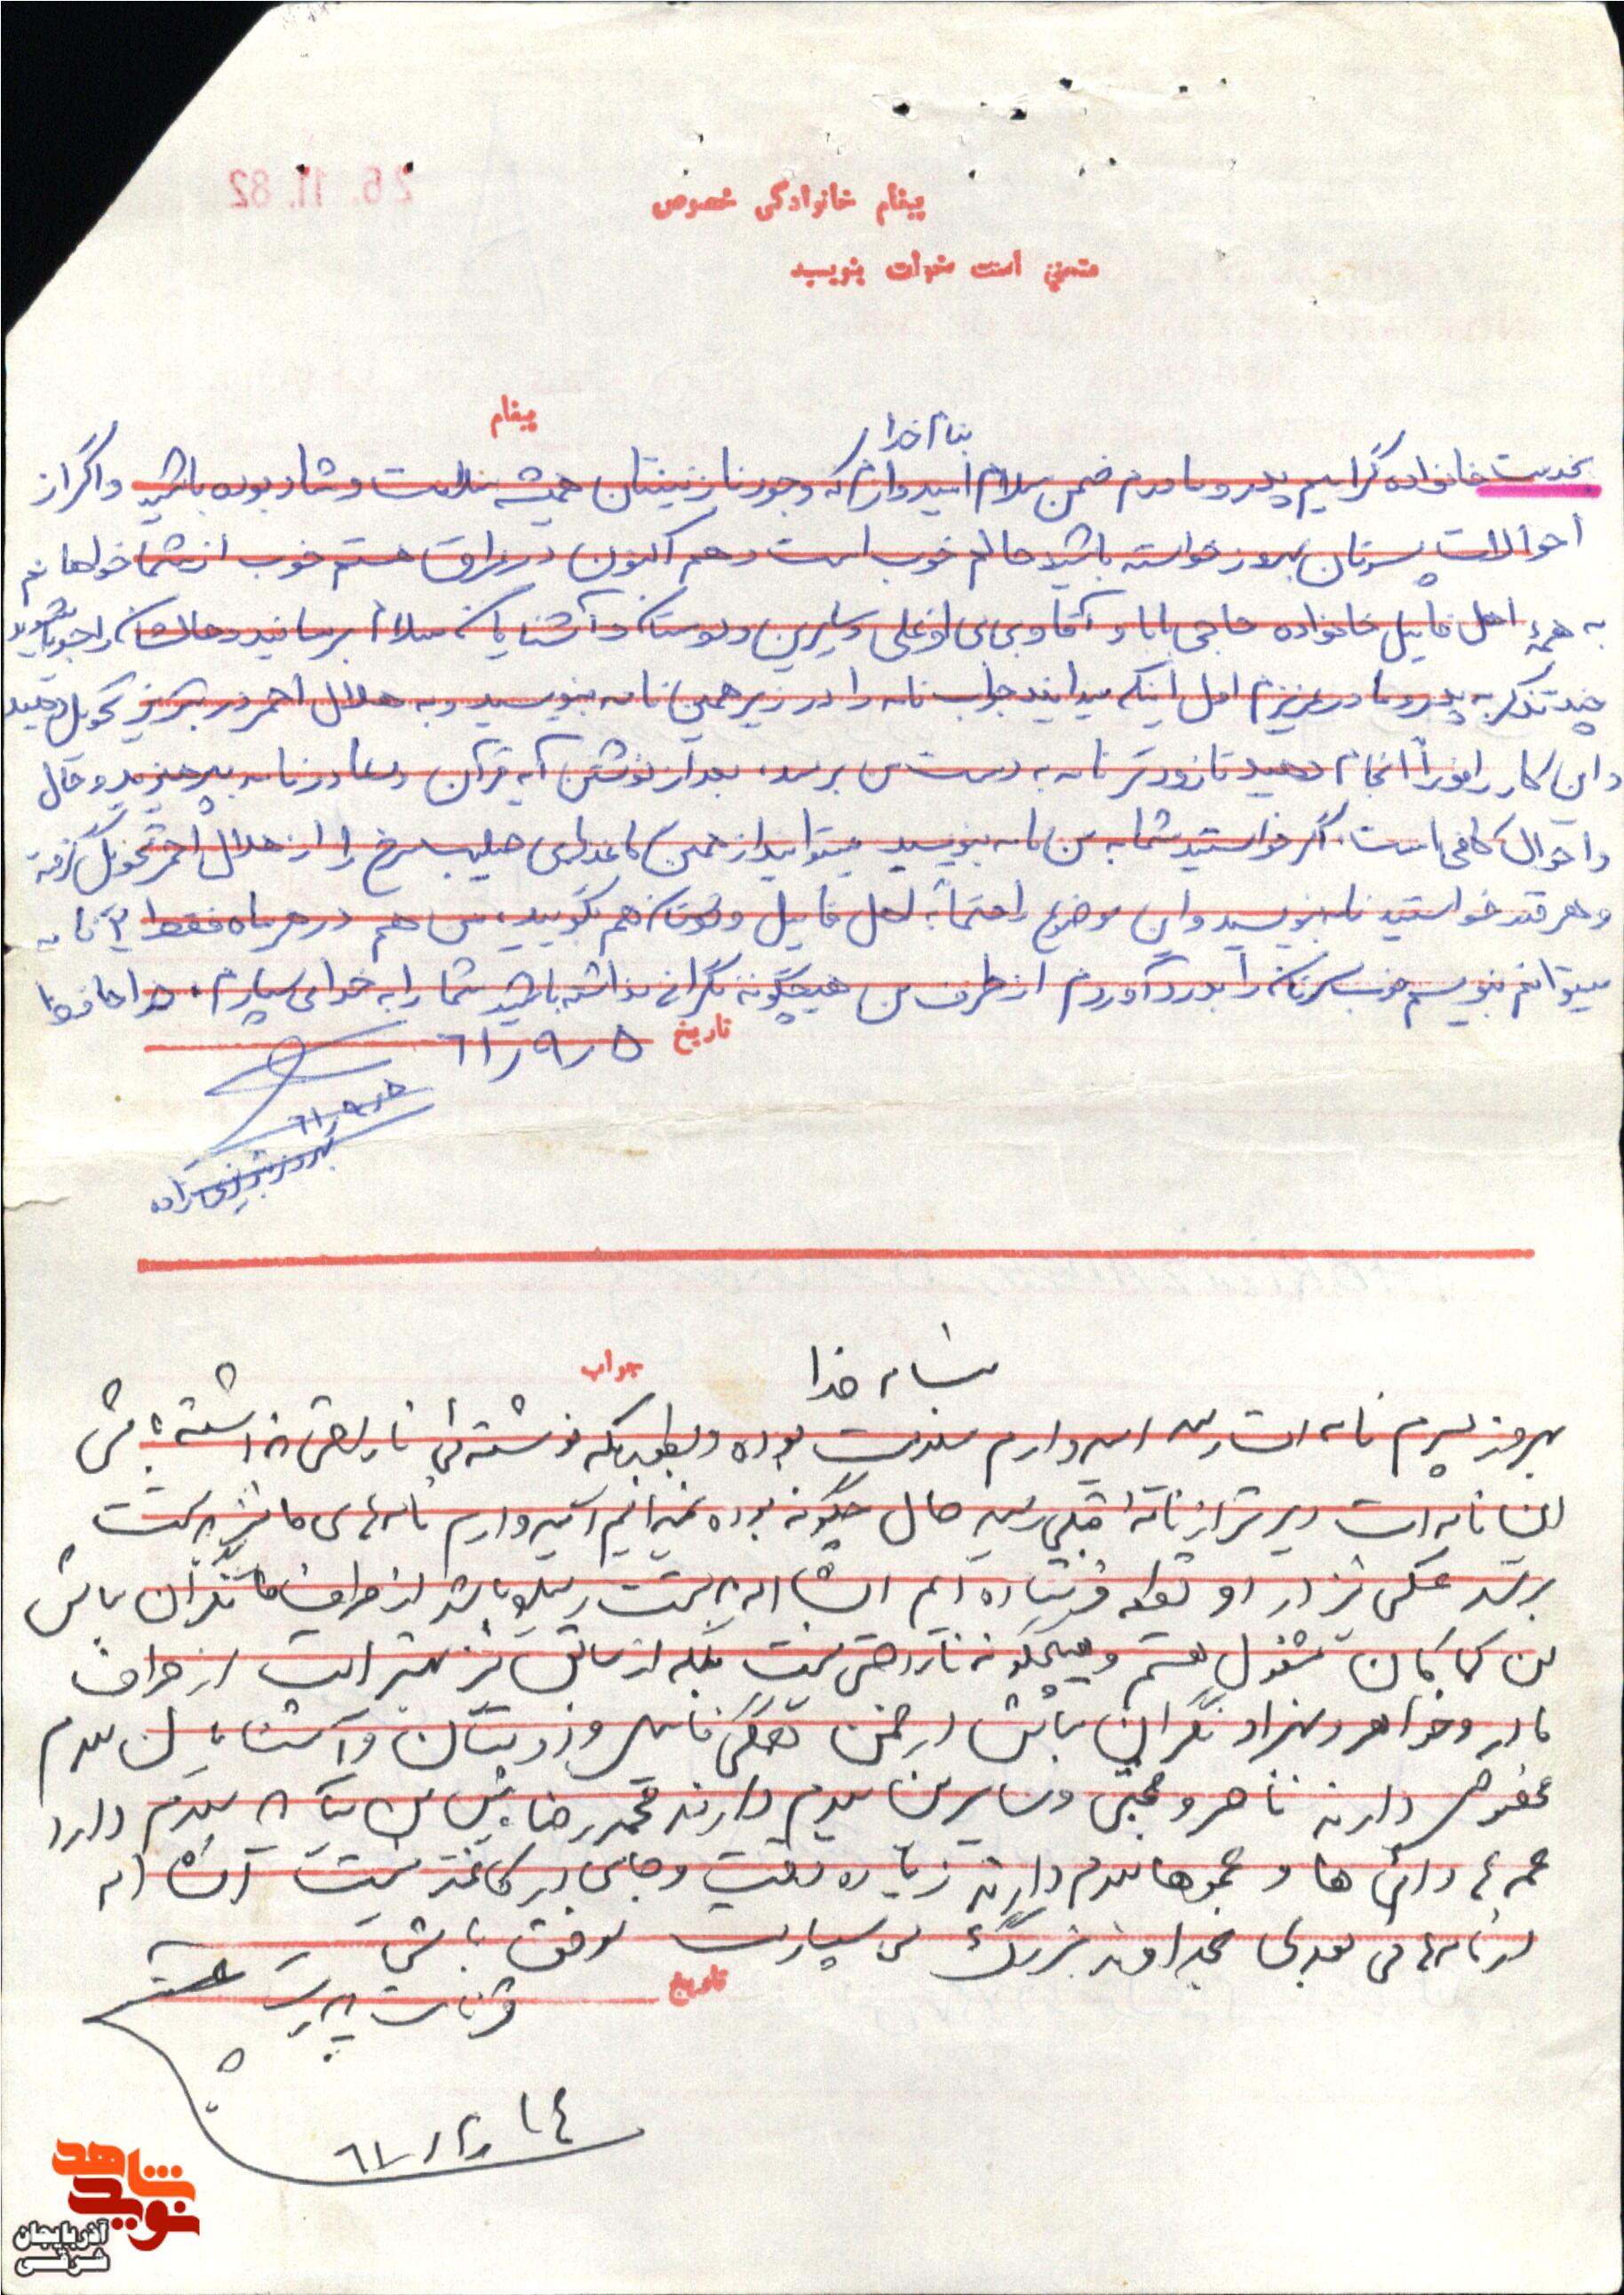 26. 11. 82
پیغام خانوادگی خصوصی
متمنی است خوانا بنویسید
پیغام
بنام خدا
بخدمت خانواده گرامیم پدر و مادرم ضمن سلام امیدوارم که وجود نازنینتان همیشه سلامت و شاد بوده باشید و اگر از
احوالات پسرتان بهروز خواسته باشید حالم خوب است و هم اکنون در عراق هستم خوب از شما خواهانم
به همهٔ اهل فامیل خانواده حاجی بابا و آقا و بی بی اوغلی و سایرین و دوستان و آشنایان سلام برسانید و حالشان را جویا شوید
چند تذکر به پدر و مادر عزیزم اول اینکه میدانید جواب نامه را در زیر همین نامه بنویسید و به هلال احمر در تبریز تحویل دهید
و این کار را فوراً انجام دهید تا زودتر نامه به دست من برسد، بعد از نوشتن آیه قرآن و دعا در نامه بپرهیزید و حال
و احوال کافی است. اگر خواستید شما به من نامه بنویسید میتوانید از همین کاغذهای صلیب سرخ را از هلال احمر تحویل گرفته
و هر قدر خواستید نامه بنویسید و این موضوع را حتماً به اهل فامیل و دوستان هم بگویید، من هم در هر ماه فقط ۲ نامه
میتوانم بنویسم خوب سرتان را بدرد آوردم از طرف من هیچگونه نگرانی نداشته باشید شما را به خدا می سپارم، خدا حافظ
تاریخ ۵ ر ۹ ر ۶۱
۵ ر ۹ ر ۶۱
بهروز تبریزی زاده
بنام خدا
جواب
بهروز پسرم نامه ات رسید امیدوارم سلامت بوده و بطوریکه نوشته ئی ناراحتی نداشته باشی
این نامه ات دیرتر از نامه قبلی رسید حال چگونه بوده نمیدانیم امیدوارم نامه های ما نیز بدستت
برسد عکس نیز در دو قطعه فرستاده ایم انشاا... بدستت رسیده باشد از طرف ما نگران نباش
من کماکان مشغول هستم و هیچگونه ناراحتی نیست بلکه از سابق نیز بهتر است از طرف
مادر و خواهر و بهزاد نگران نباش در ضمن همگی فامیل و دوستان و آشنایان سلام
مخصوص دارند ناصر و مجتبی و سایرین سلام دارند محمدرضا پیش من است سلام دارد
عمه ها دائی ها و عموها سلام دارند زیاده وقت و جای در کاغذ نیست انشاا...
در نامه های بعدی بخداوند بزرگ می سپارمت موفق باشی
تاریخ
قربانت پدرت
۱۴ ر ۶۱
شاهد
نوید
آذربایجان
شرقی